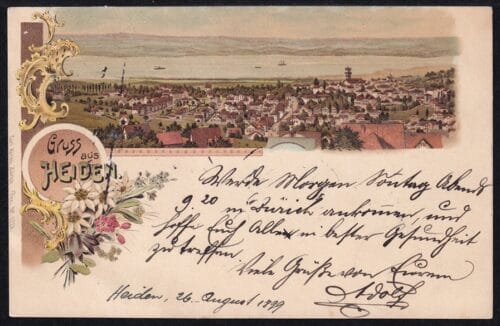 Gruss
aus
HEIDEN.
Werde Morgen Sontag Abends
9.20 in Zürich ankommen, und
hoffe Euch Alle in bester Gesundheit
zu treffen.
Viele Grüße von Eurem
Adolf
Heiden, 26. August 1899